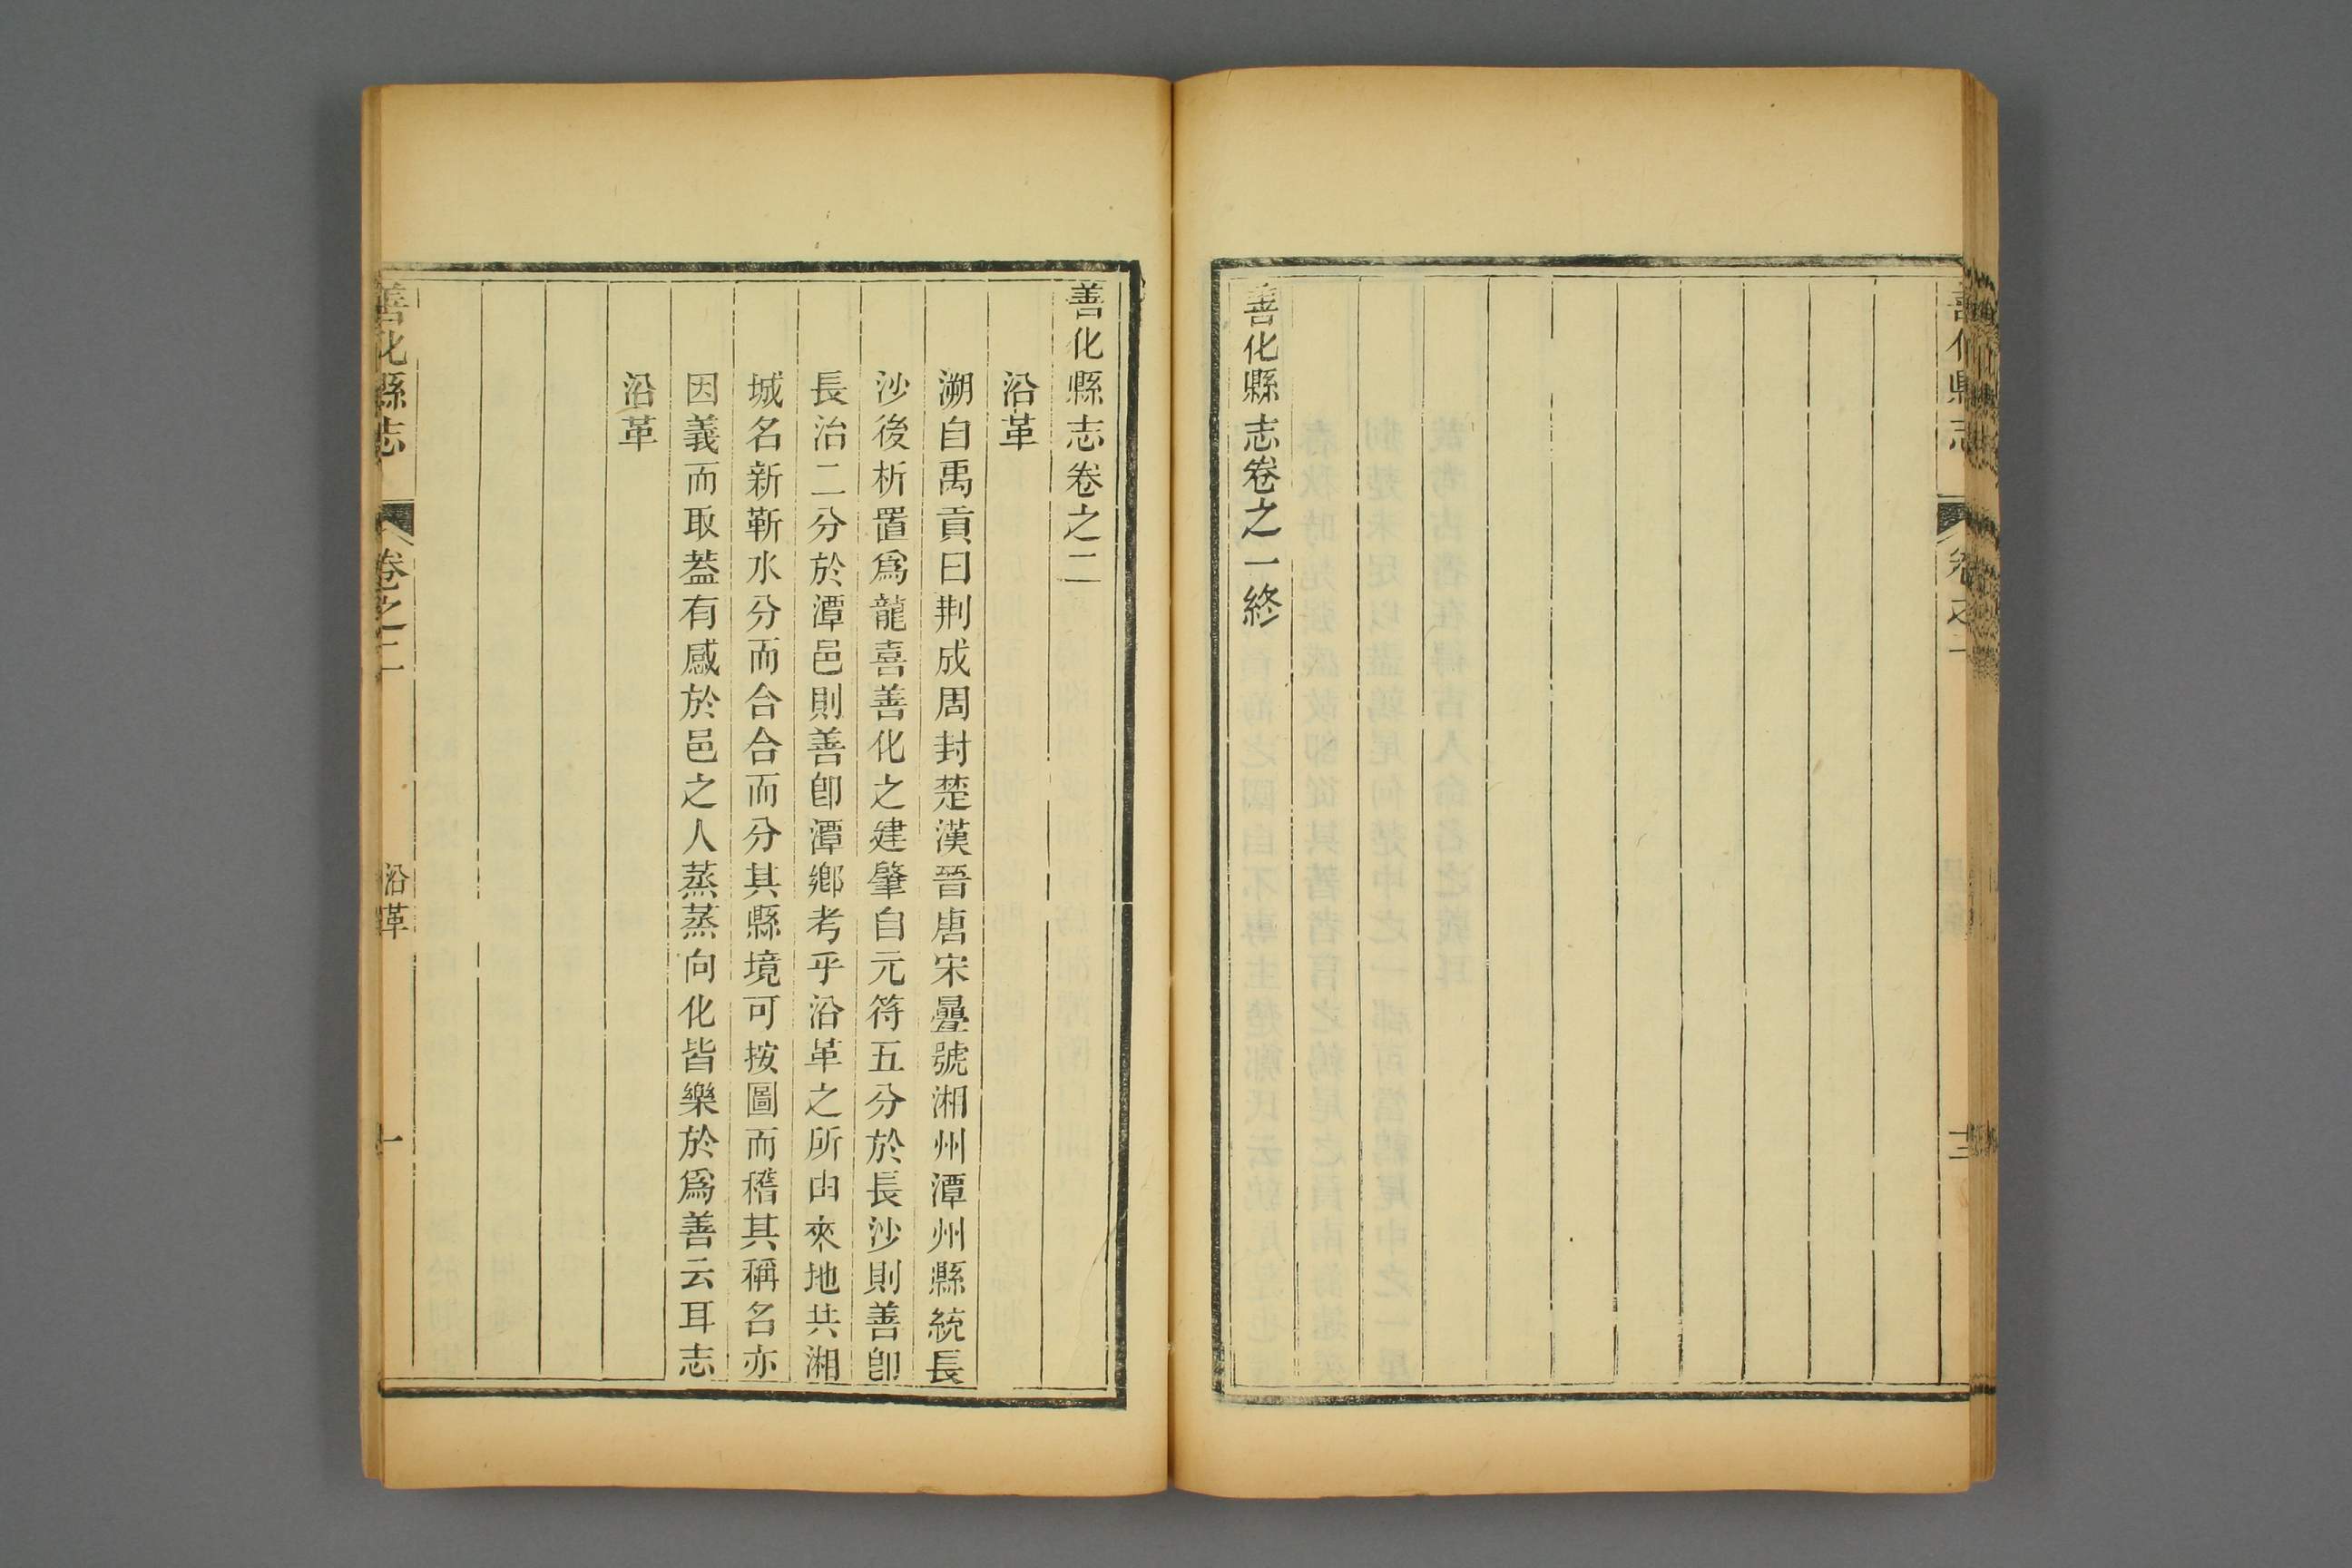 善化縣志
卷之一
十三
善化縣志卷之一終
善化縣志卷之二
沿革
溯自禹貢曰荆成周封楚漢晉唐宋疊號湘州潭州縣統長
沙後析置爲龍喜善化之建肇自元符五分於長沙則善卽
長治二分於潭邑則善卽潭鄉考乎沿革之所由來地共湘
城名新靳水分而合合而分其縣境可按圖而稽其稱名亦
因義而取葢有感於邑之人蒸蒸向化皆樂於爲善云耳志
沿革
善化縣志
卷之二
沿革
一